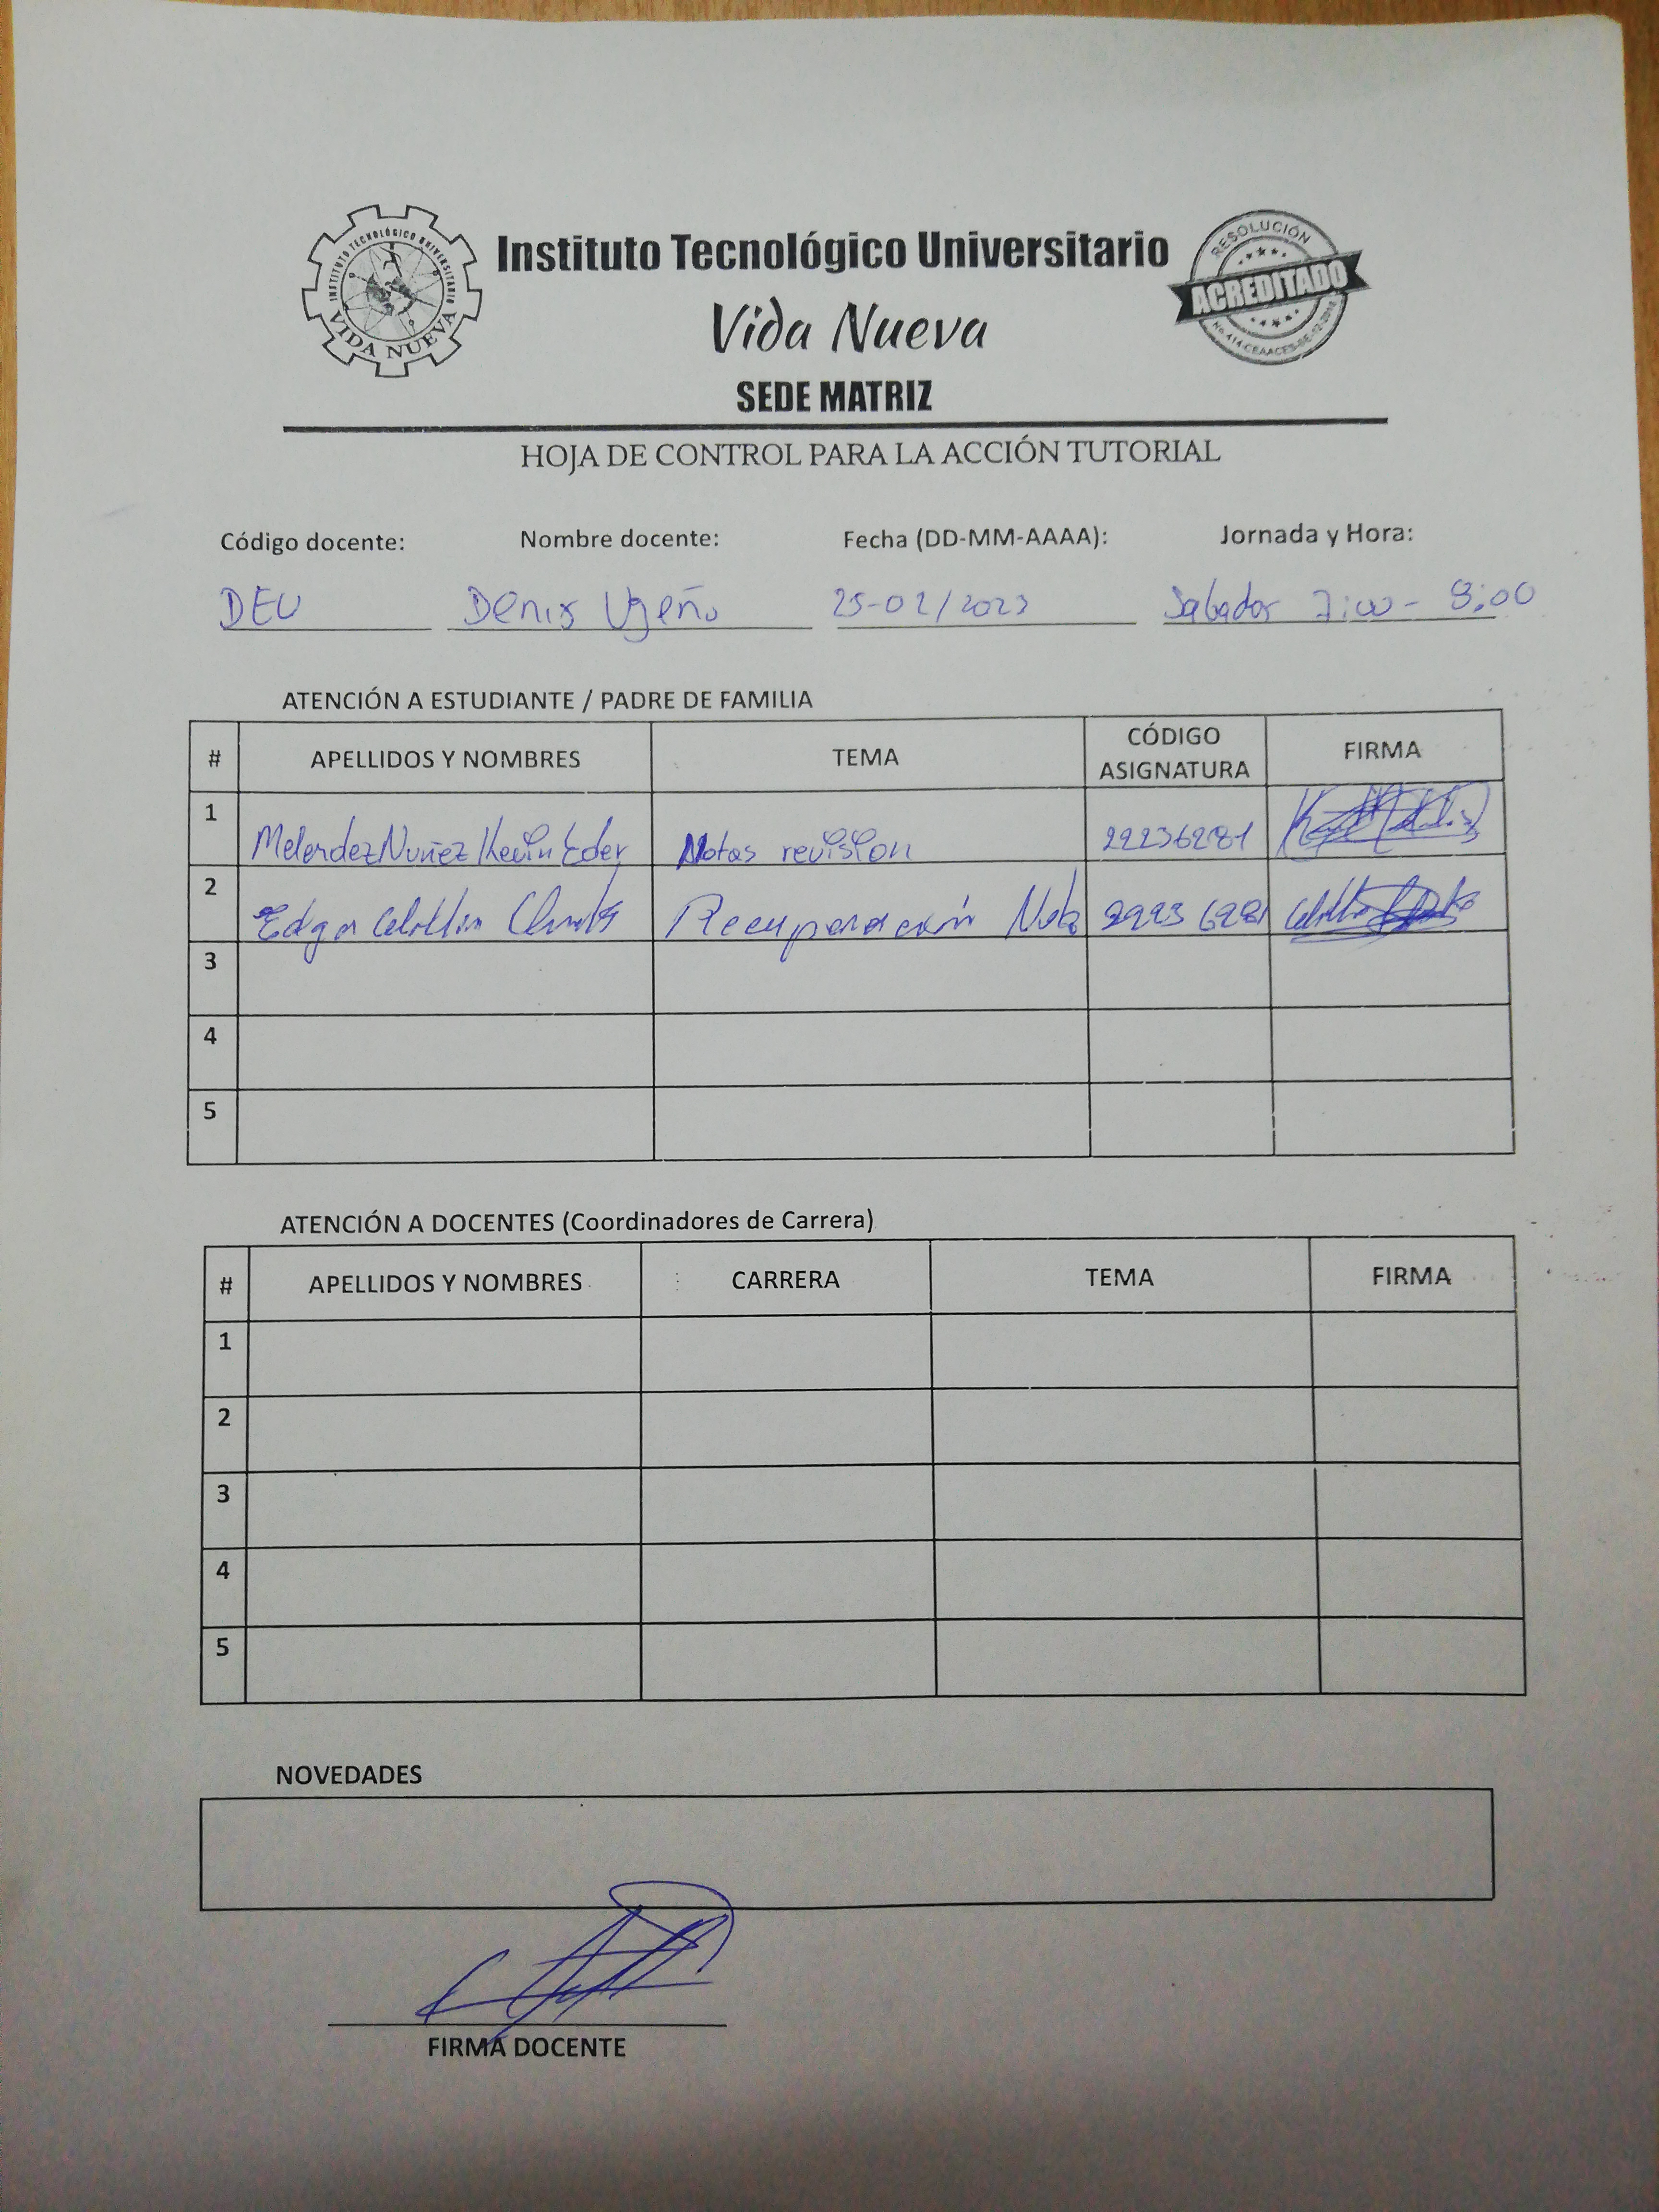 INSTITUTO TECNOLÓGICO UNIVERSITARIO
VIDA NUEVA
Instituto Tecnológico Universitario
Vida Nueva
SEDE MATRIZ
RESOLUCIÓN
ACREDITADO
HOJA DE CONTROL PARA LA ACCIÓN TUTORIAL
Código docente: Nombre docente: Fecha (DD-MM-AAAA): Jornada y Hora:
DEU Denis Ugeño 25-02/2023 Sabador 7:00-
ATENCIÓN A ESTUDIANTE / PADRE DE FAMILIA
# APELLIDOS Y NOMBRES TEMA CÓDIGO ASIGNATURA FIRMA
1 Melendez Nuñez Kevin Eder Notas revision 22236281
2 Edgar Recuperación Nota
3
4
5
ATENCIÓN A DOCENTES (Coordinadores de Carrera)
# APELLIDOS Y NOMBRES CARRERA TEMA FIRMA
1
2
3
4
5
NOVEDADES
FIRMA DOCENTE